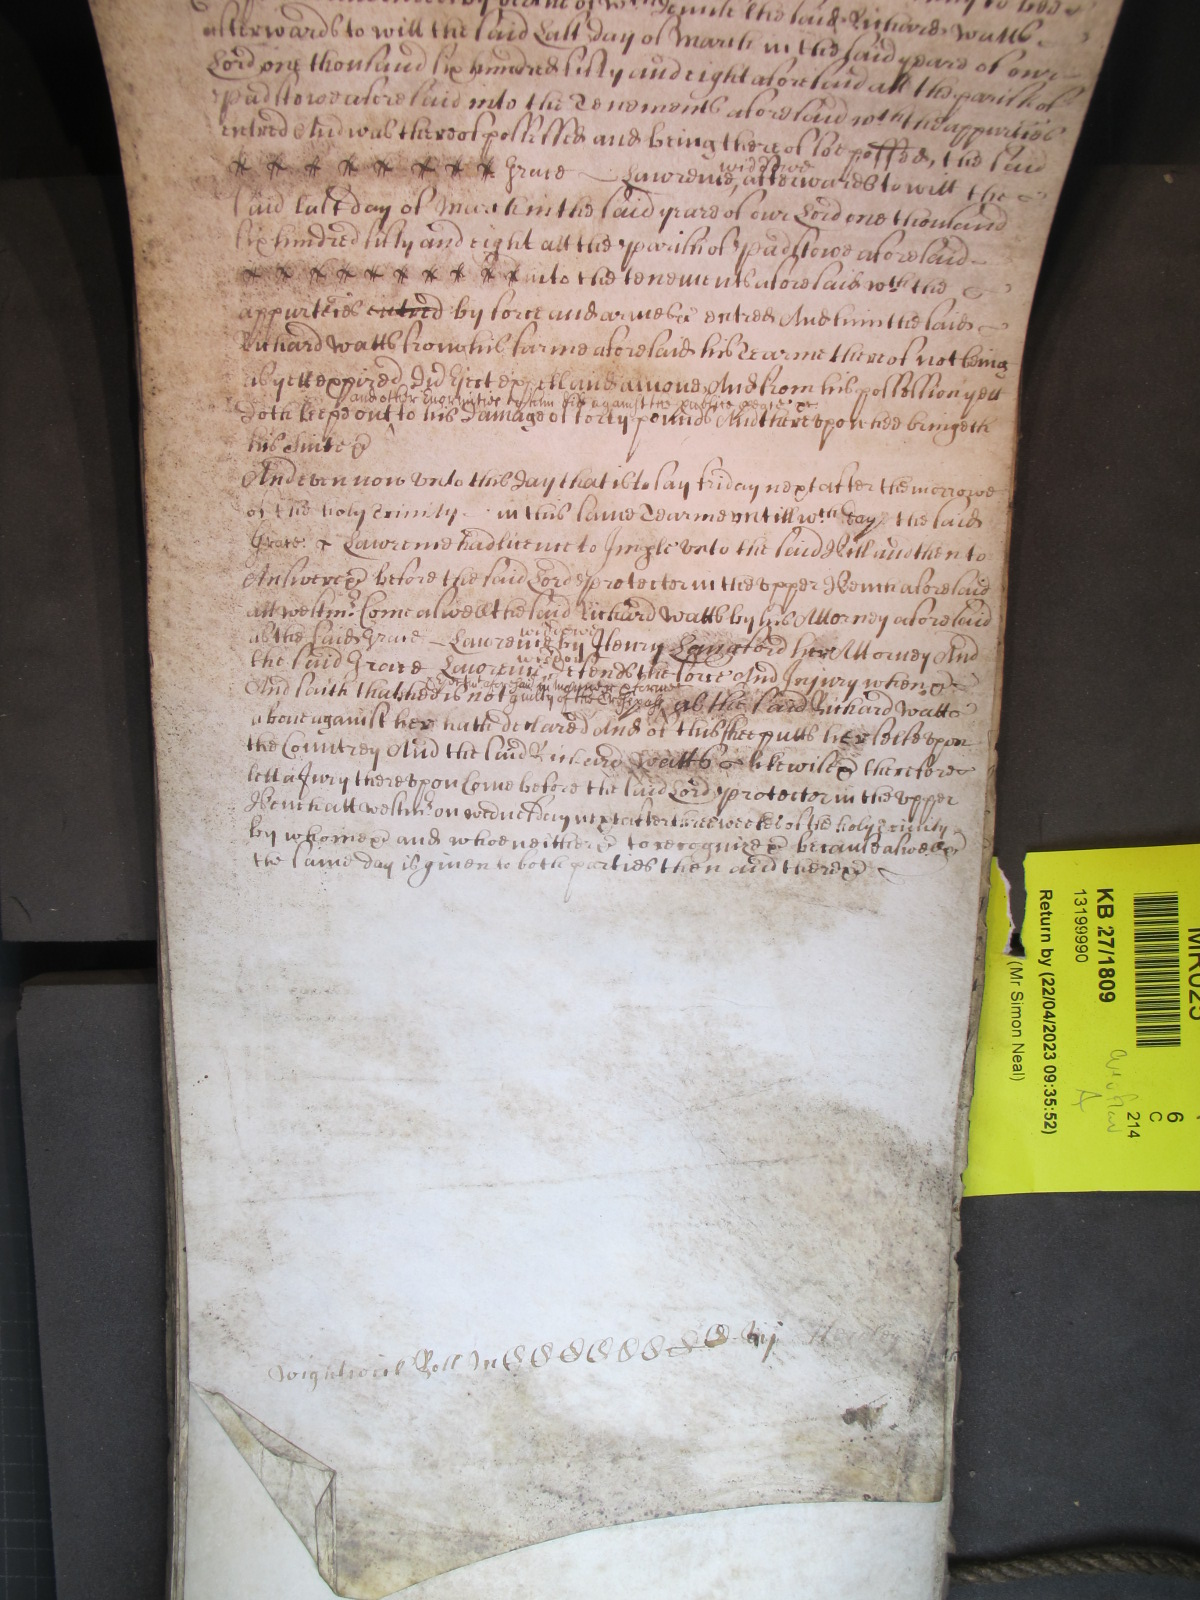 afterwards to witt the said Last day of March in the said yeare of our
Lord one thousand six hundred fifty and eight aforesaid att the parish of
Padstowe aforesaid into the Tenements aforesaid wth the appurtēs
entred And was thereof possessed and being thereof soe possed, the said
Grace Lawrence widdowe, afterwards to witt the
said last day of March in the said yeare of our Lord one thousand
six hundred fifty and eight att the parish of Padstowe aforesaid
into the tenements aforesaid wth the
appurtēs entred by force and armes &c entred And him the said
Richard Watts from his farme aforesaid his Tearme thereof not being
as yett expired Did Eject expell and amove And from his possession yett
and other enormities to him did against the publique peace &c
doth keepe out to his damage of forty pounds And thereupon hee bringeth
his suite &c
And even now unto this day that is to say friday next after the morrowe
of the holy Trinity in this same Tearme untill wch day the said
Grace Lawrence had licence to Imple unto the said Bill and then to
Answere &c before the said Lord Protector in the upper Bench aforesaid
att Westmr Come aswell the said Richard Watts by his Attorney aforesaid
as the said Grace Lawrence widdowe by Henry Langford her Attorney And
the said Grace Lawrence widdow defends the force And Injury when &c
And saith that shee is not guilty of the Trespass & Ejectmt aforesaid in manner & forme as the said Richard Watts
above against her hath declared And of this shee putts her selfe upon
the Countrey And the said Richard Watts likewise &c therefore
lett a Jury thereupon Come before the said Lord Protector in the upper
Bench att Westmr on wednesday next after three weekes of the holy Trinity
by whome &c and whoe neither &c to recognize &c because aswell &c
the same day is given to both parties then and there &c
KB 27/1809
13199990
Return by (22/04/2023 09:35:52)
(Mr Simon Neal)
6
C
214